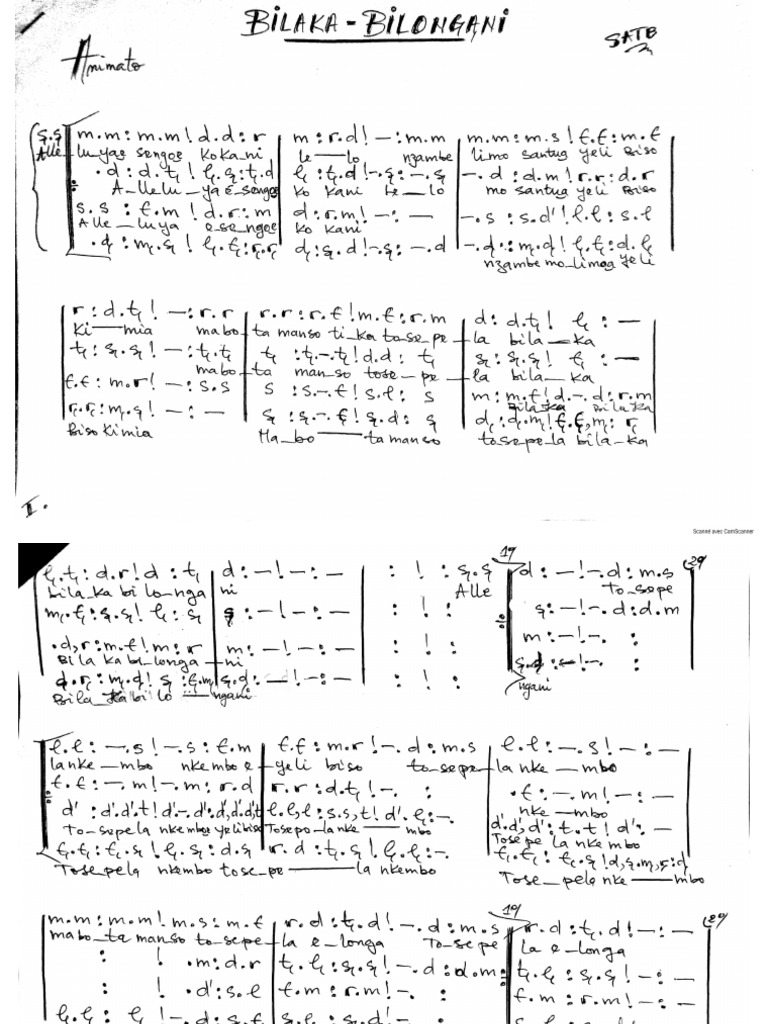 BILAKA - BILONGANI
SATB
Animato
s̩.s̩ m.m : m.m ! d.d : r m : r.d ! - : m.m m.m : m.s ! f.f : m.f
Alle- lu-yae sengoe Kokani le lo nzambe limo santug yeli Biso
. d : d.t̩ ! l̩.s̩ : t̩.d l̩ : t̩.d ! -.s̩ : -.s̩ -. d : d.m ! r.r : d.r
A-llelu-ya e-sengoe ko kani le-lo mo santug yeli Biso
s.s : f.m ! d.r : m d : r.m ! - : - -. s : s.d' ! l.l : s.l
Alle-luya e-se-ngoe ko kani
. d̩ : m̩.s̩ ! l̩.f̩ : r̩.r̩ d̩ : s̩.d ! -.s̩ : -.d -.d. : m̩.d ! f̩.f̩ : d.l̩
nzambe mo-limog yeli
r : d.t̩ ! - : r.r r.r : r.f ! m.f : r.m d : d.t̩ ! l̩ : -
Ki-mia mabo-ta manso ti-ka to-se-pe-la bila-ka
t̩ : s̩.s̩ ! - : t̩.t̩ t̩ : t̩.-.t̩ ! d.d : t̩ s̩ : s̩.s̩ ! l̩ : -
mabo-ta man-so tose-pe-la bila-ka
f.f : m.r ! - : s.s s : s.-.f ! s.l : s m : m.f ! d.-.d : r.m
Bilaka Bilaka
r̩.r̩ : m̩.s̩ ! - : - s̩ : s̩.-.f̩ ! s̩.d : s̩ d̩ : d̩.m̩ ! f̩.f̩, m̩ : r̩
Biso Kimia Ma-bo ta manso to sepe la bila-ka
II.
Scanné avec CamScanner
1º 2º
l̩.t̩ : d.r ! d : t̩ d : - ! - : - : ! : s̩.s̩ d : - ! -. d : m.s
bila ka bi lo-nga ni Alle To-sepe
m̩.f̩ : s̩.s̩ ! l̩ : s̩ s̩ : - ! - : - : ! : s̩ : - ! -. d : d.m
. d, r : m.f ! m : r m : - ! - : - : ! : m : - ! -. :
Bila ka bi-longa-ni
d̩.r̩ : m̩.d̩ ! s̩ : s̩.d : - ! - : - : ! : s̩.d : - ! -. :
Bila Ka bi lo ngani ngani
l.l : -. s ! -. s : f.m f.f : m.r ! -. d : m.s l.l : -. s ! - : -
lanke-mbo nkembo e-yeli biso to-sepe-la nke-mbo
f.f : -. m ! -. m : r.d r.r : d.t̩ ! -. : . f : -. m ! - : -
nke-mbo
d' : d'.d'.t ! d'.-.d' : d',d',d',t l.l,l : s.s,t ! d'.l : -. d'.d',d' : t.t ! d'. : -
To-sepela nkembo yelibiso Tosepe-lanke-mbo Tosepe la nkembo
f̩.f̩ : f̩.s̩ ! l̩.s̩ : d.s̩ r.d : t̩.s̩ ! l̩.l̩ : -. f̩.f̩ : f̩.s̩ ! d,s̩.m̩,r̩ : d̩
Tosepela nkembo tose-pe la nkembo Tose-pela nke-mbo
1º 2º
m.m : m.m ! m.s : m.f r.d : t̩.d ! -. d : m.s r.d : t̩.d ! - : -
mabo-ta manso to-sepe-la e-longa To-sepe La e-longa
: ! . m : d.r t̩.l̩ : s̩.s̩ ! -. d : d.m t̩.l̩ : s̩.s̩ ! - : -
: ! . d' : s.l f.m : r.m ! -. : f.m : r.m ! - : -